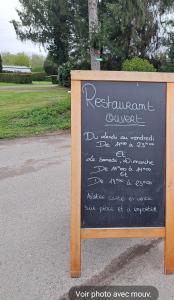 Restaurant
ouvert
Du lundi au vendredi
De 11h00 à 23h00
Et
Le samedi, Dimanche
De 11h00 à 14h00
Et
De 18h00 à 23h00
sur place et à emporter
Voir photo avec mouv.